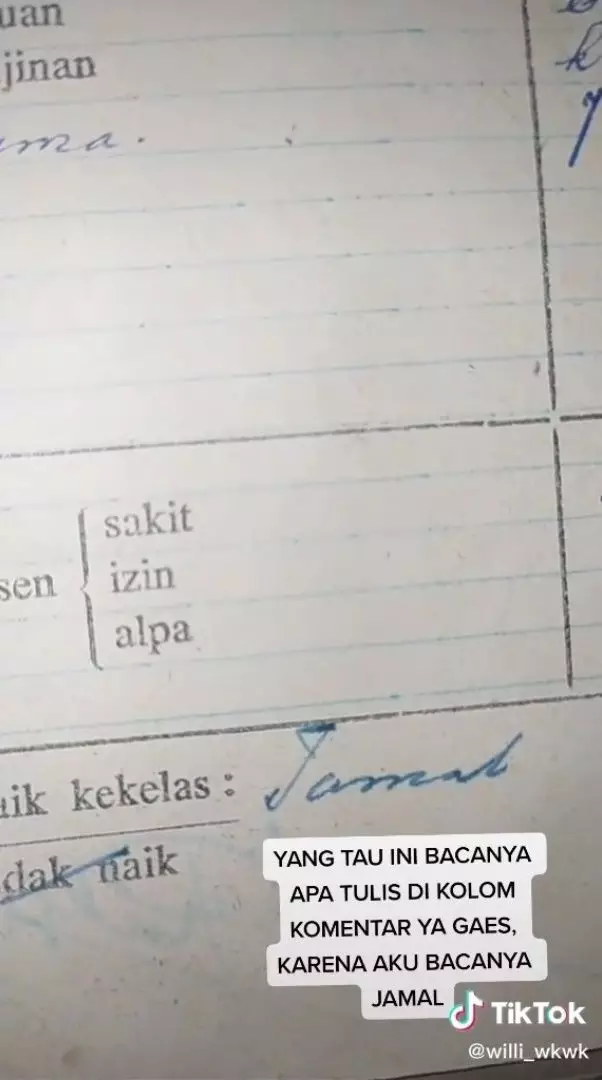 uan
jinan
ama.
sen
sakit
izin
alpa
aik kekelas : Tamat
dak naik
YANG TAU INI BACANYA
APA TULIS DI KOLOM
KOMENTAR YA GAES,
KARENA AKU BACANYA
JAMAL
TikTok
@willi_wkwk